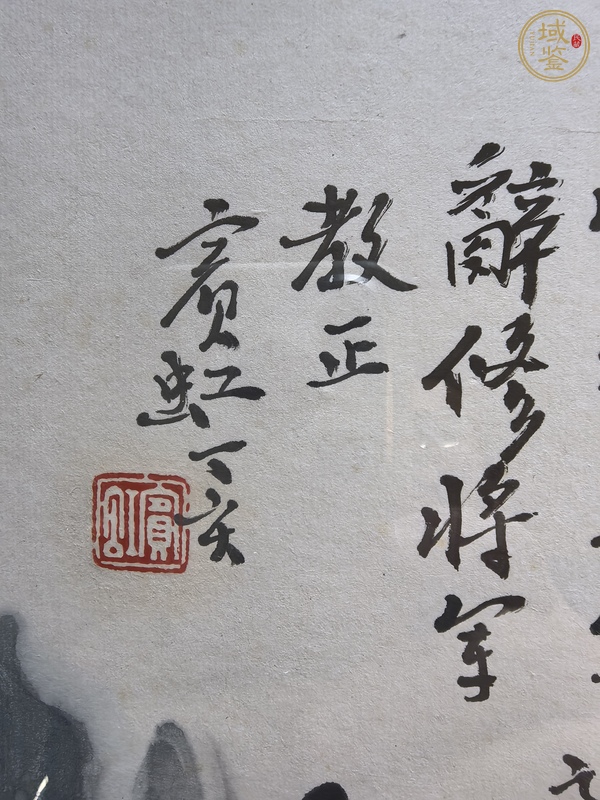 辭修將軍
教正
賓虹丁亥
賓虹
域鉴